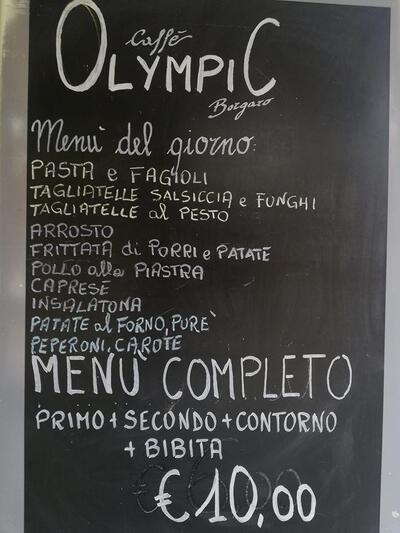 Caffè
OLYMPIC
Borgaro
Menù del giorno:
PASTA e FAGIOLI
TAGLIATELLE SALSICCIA e FUNGHI
TAGLIATELLE al PESTO
ARROSTO
FRITTATA di PORRI e PATATE
POLLO alla PIASTRA
CAPRESE
INSALATONA
PATATE al FORNO, PURE'
PEPERONI, CAROTE
MENÙ COMPLETO
PRIMO + SECONDO + CONTORNO
+ BIBITA
€ 10,00